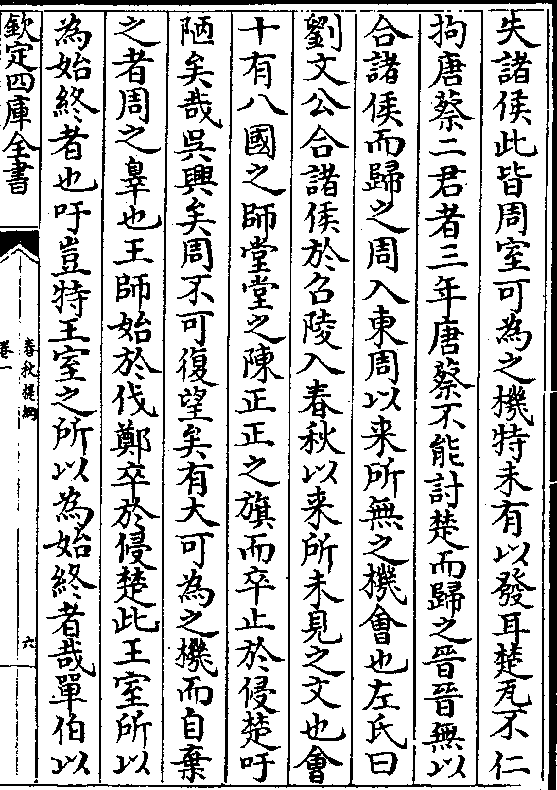 失諸侯此皆周室可為之機特未有以發耳楚瓦不仁
拘唐蔡二君者三年唐蔡不能討楚而歸之晉晉無以
合諸侯而歸之周入東周以来所無之機會也左氏曰
劉文公合諸侯於召陵入春秋以来所未見之文也會
十有八國之師堂堂之陳正正之旗而卒止於侵楚吁
陋矣哉吳興矣周不可復望矣有大可為之機而自棄
之者周之辠也王師始於伐鄭卒於侵楚此王室所以
為始終者也吁豈特王室之所以為始終者哉單伯以
欽定四庫全書
春秋提綱
卷一
六